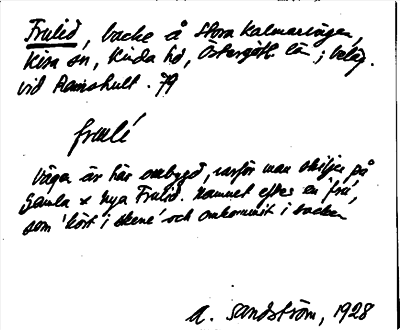 Frulid, backe å Stora Kalmarvägen,
Kisa sn, Kinda hd, Östergötl. län; beläg.
vid Ramshult. 79
frulé
Vägen är här ombygd, varför man skiljer på
Gamla & nya Frulid. Namnet efter en 'fru',
som 'kört i skené' och omkommit i backen
A. Sandström, 1928